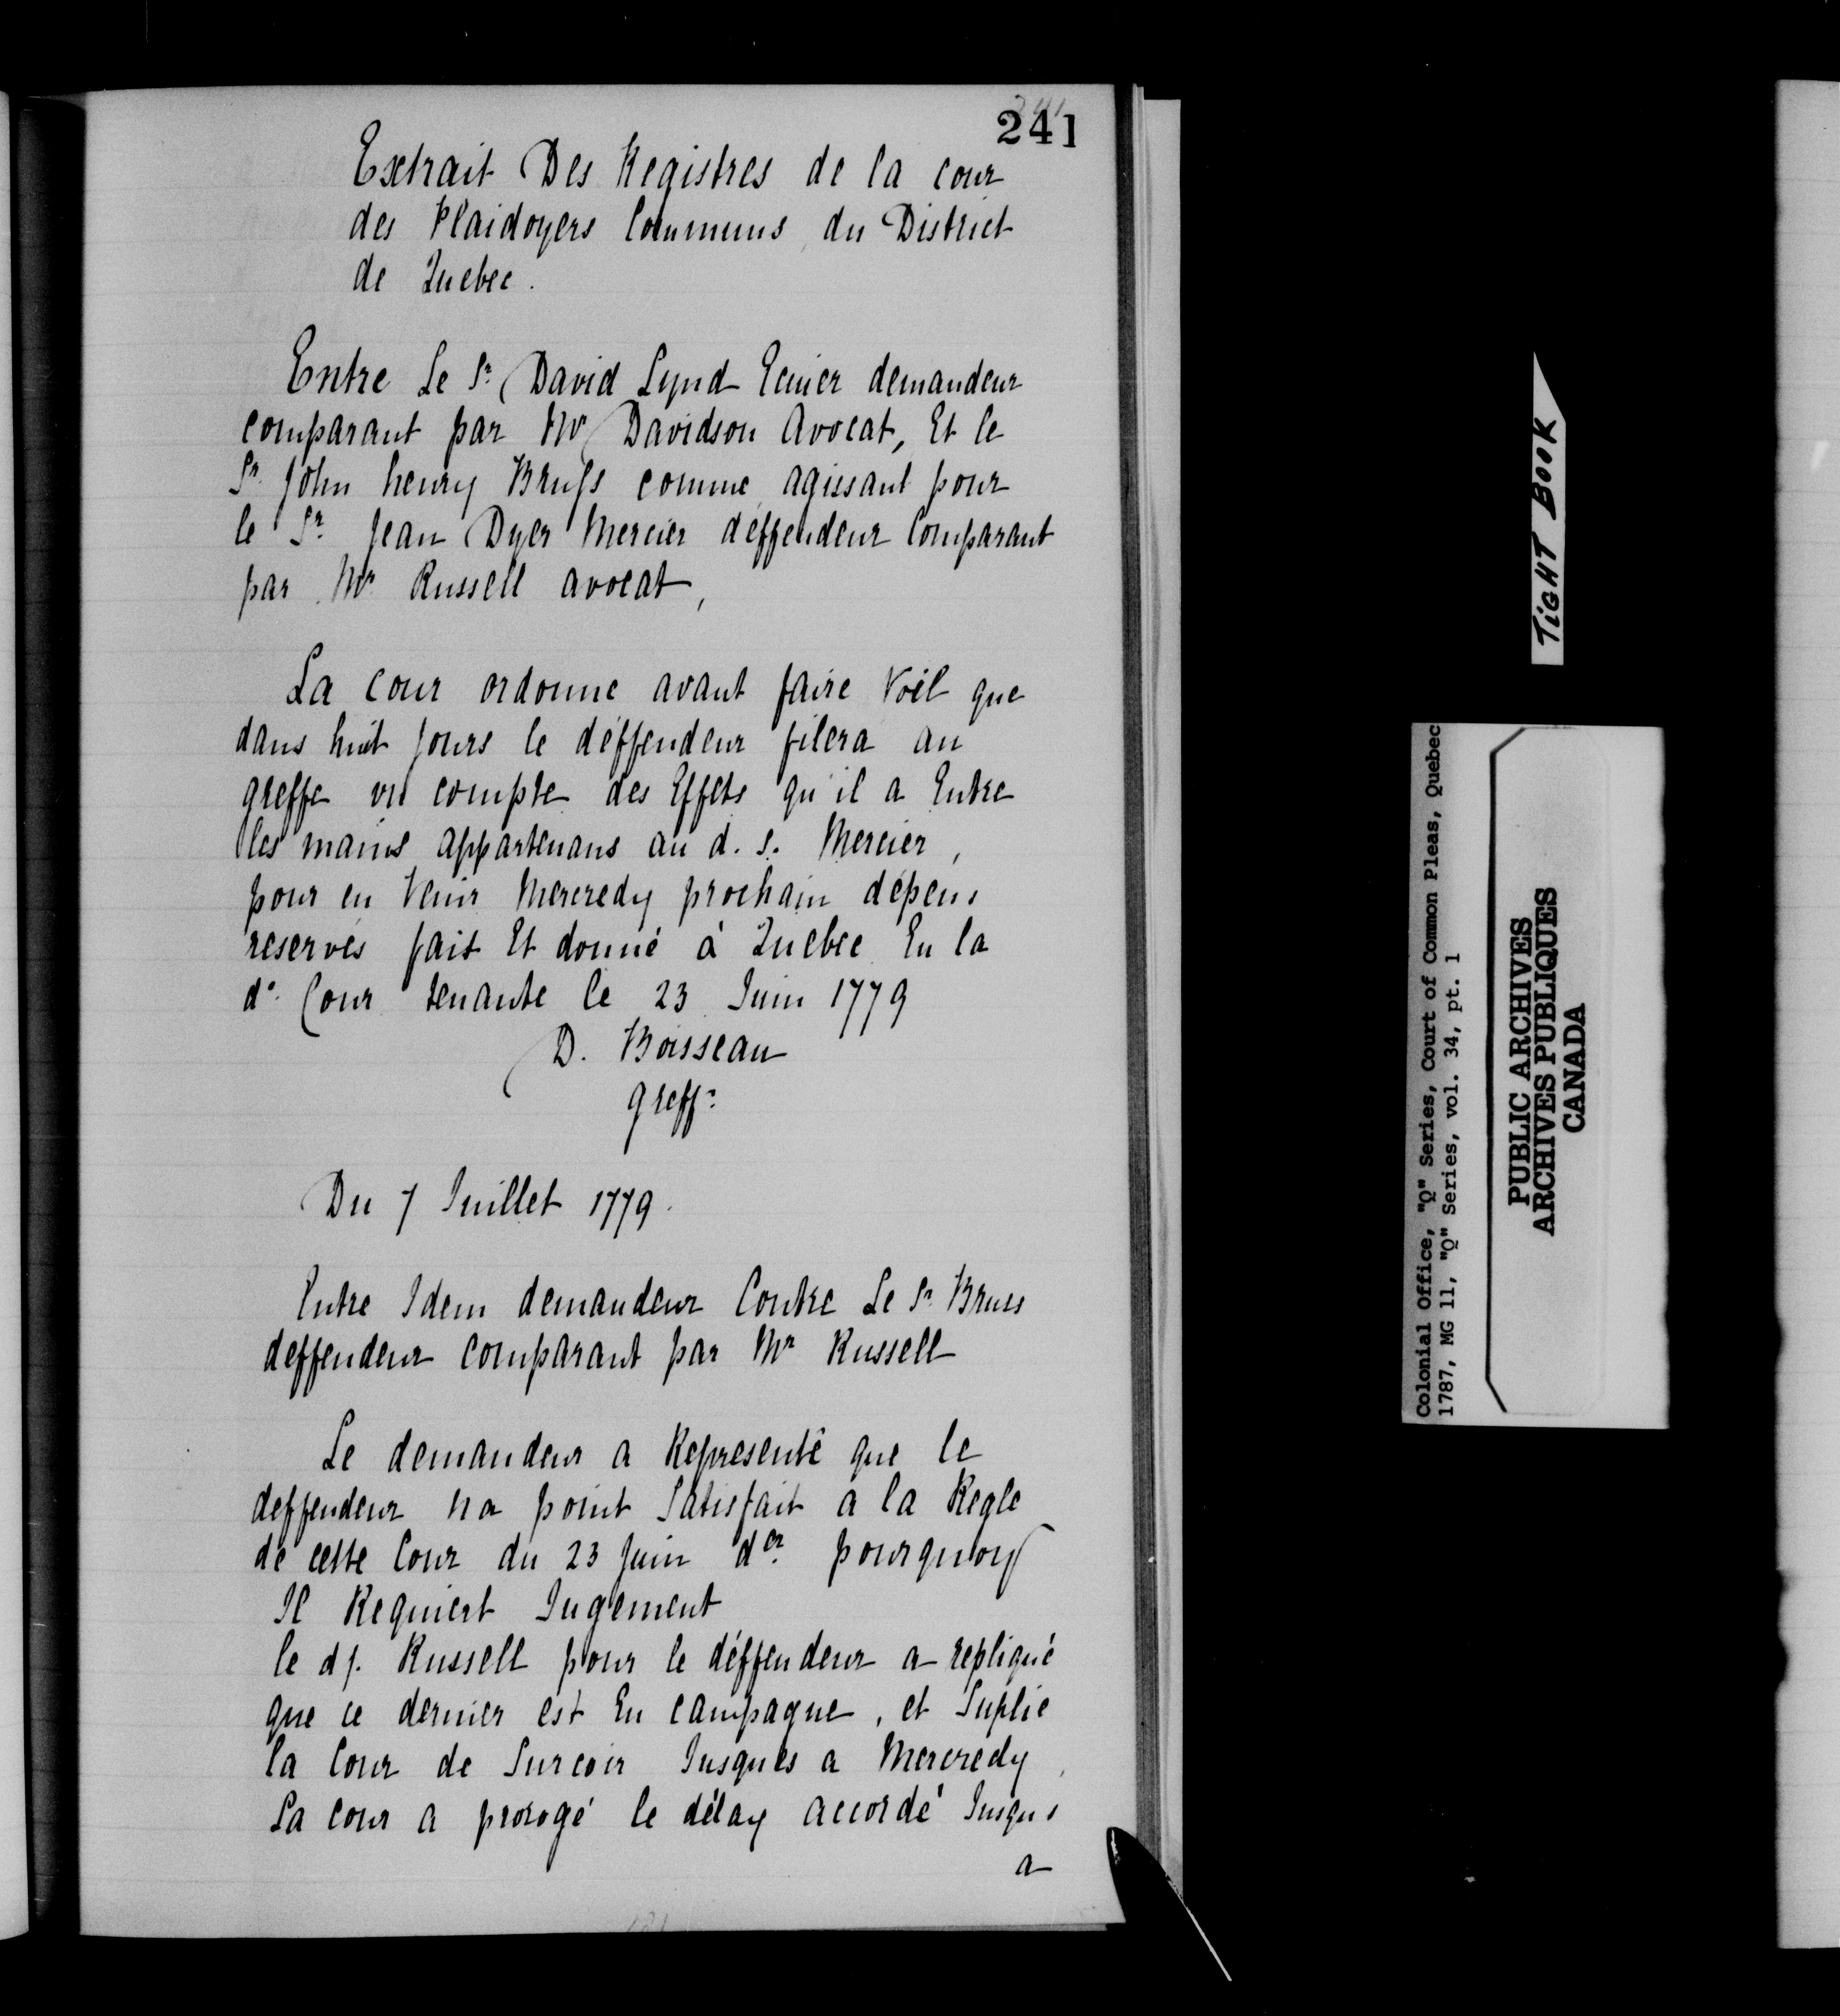 241
Extrait Des Registres de la cour
des Plaidoyers Communs du District
de Quebec.
Entre Le Sr David Lynd Ecuier demandeur
comparant par Mr Davidson Avocat, Et le
Sr. John henry Bruss comme agissant pour
le Sr. Jean Dyer Mercier déffendeur Comparant
par Mr Russell avocat,
La Cour ordonne avant faire que
dans huit Jours le déffendeur filera au
greffe un compte des Effets qu'il a Entre
les mains appartenans au d. s. Mercier,
pour en Venir Mercredy prochain dépens
reservés fait Et donné à Quebec En la
de. Cour tenante le 23 Juin 1779
D. Boisseau
Greffr.
Du 7 Juillet 1779.
Entre Idem demandeur Contre Le Sr. Bruss
deffendeur comparant par Mr Russell
Le demandeur a Representé que le
deffendeur na point Satisfait a la Regle
de cette Cour du 23 Juin der. pourquoy
Il Requiert Jugement
le ds. Russell pour le déffendeur a repliqué
que ce dernier est En campagne, et Suplie
la Cour de Surcoir Jusques a Mercredy,
La Cour a prorogé le délay accordé Jusqus
a
TIGHT BOOK
Colonial Office, "Q" Series, Court of Common Pleas, Quebec
1787, MG 11, "Q" Series, vol. 34, pt. 1
PUBLIC ARCHIVES
ARCHIVES PUBLIQUES
CANADA